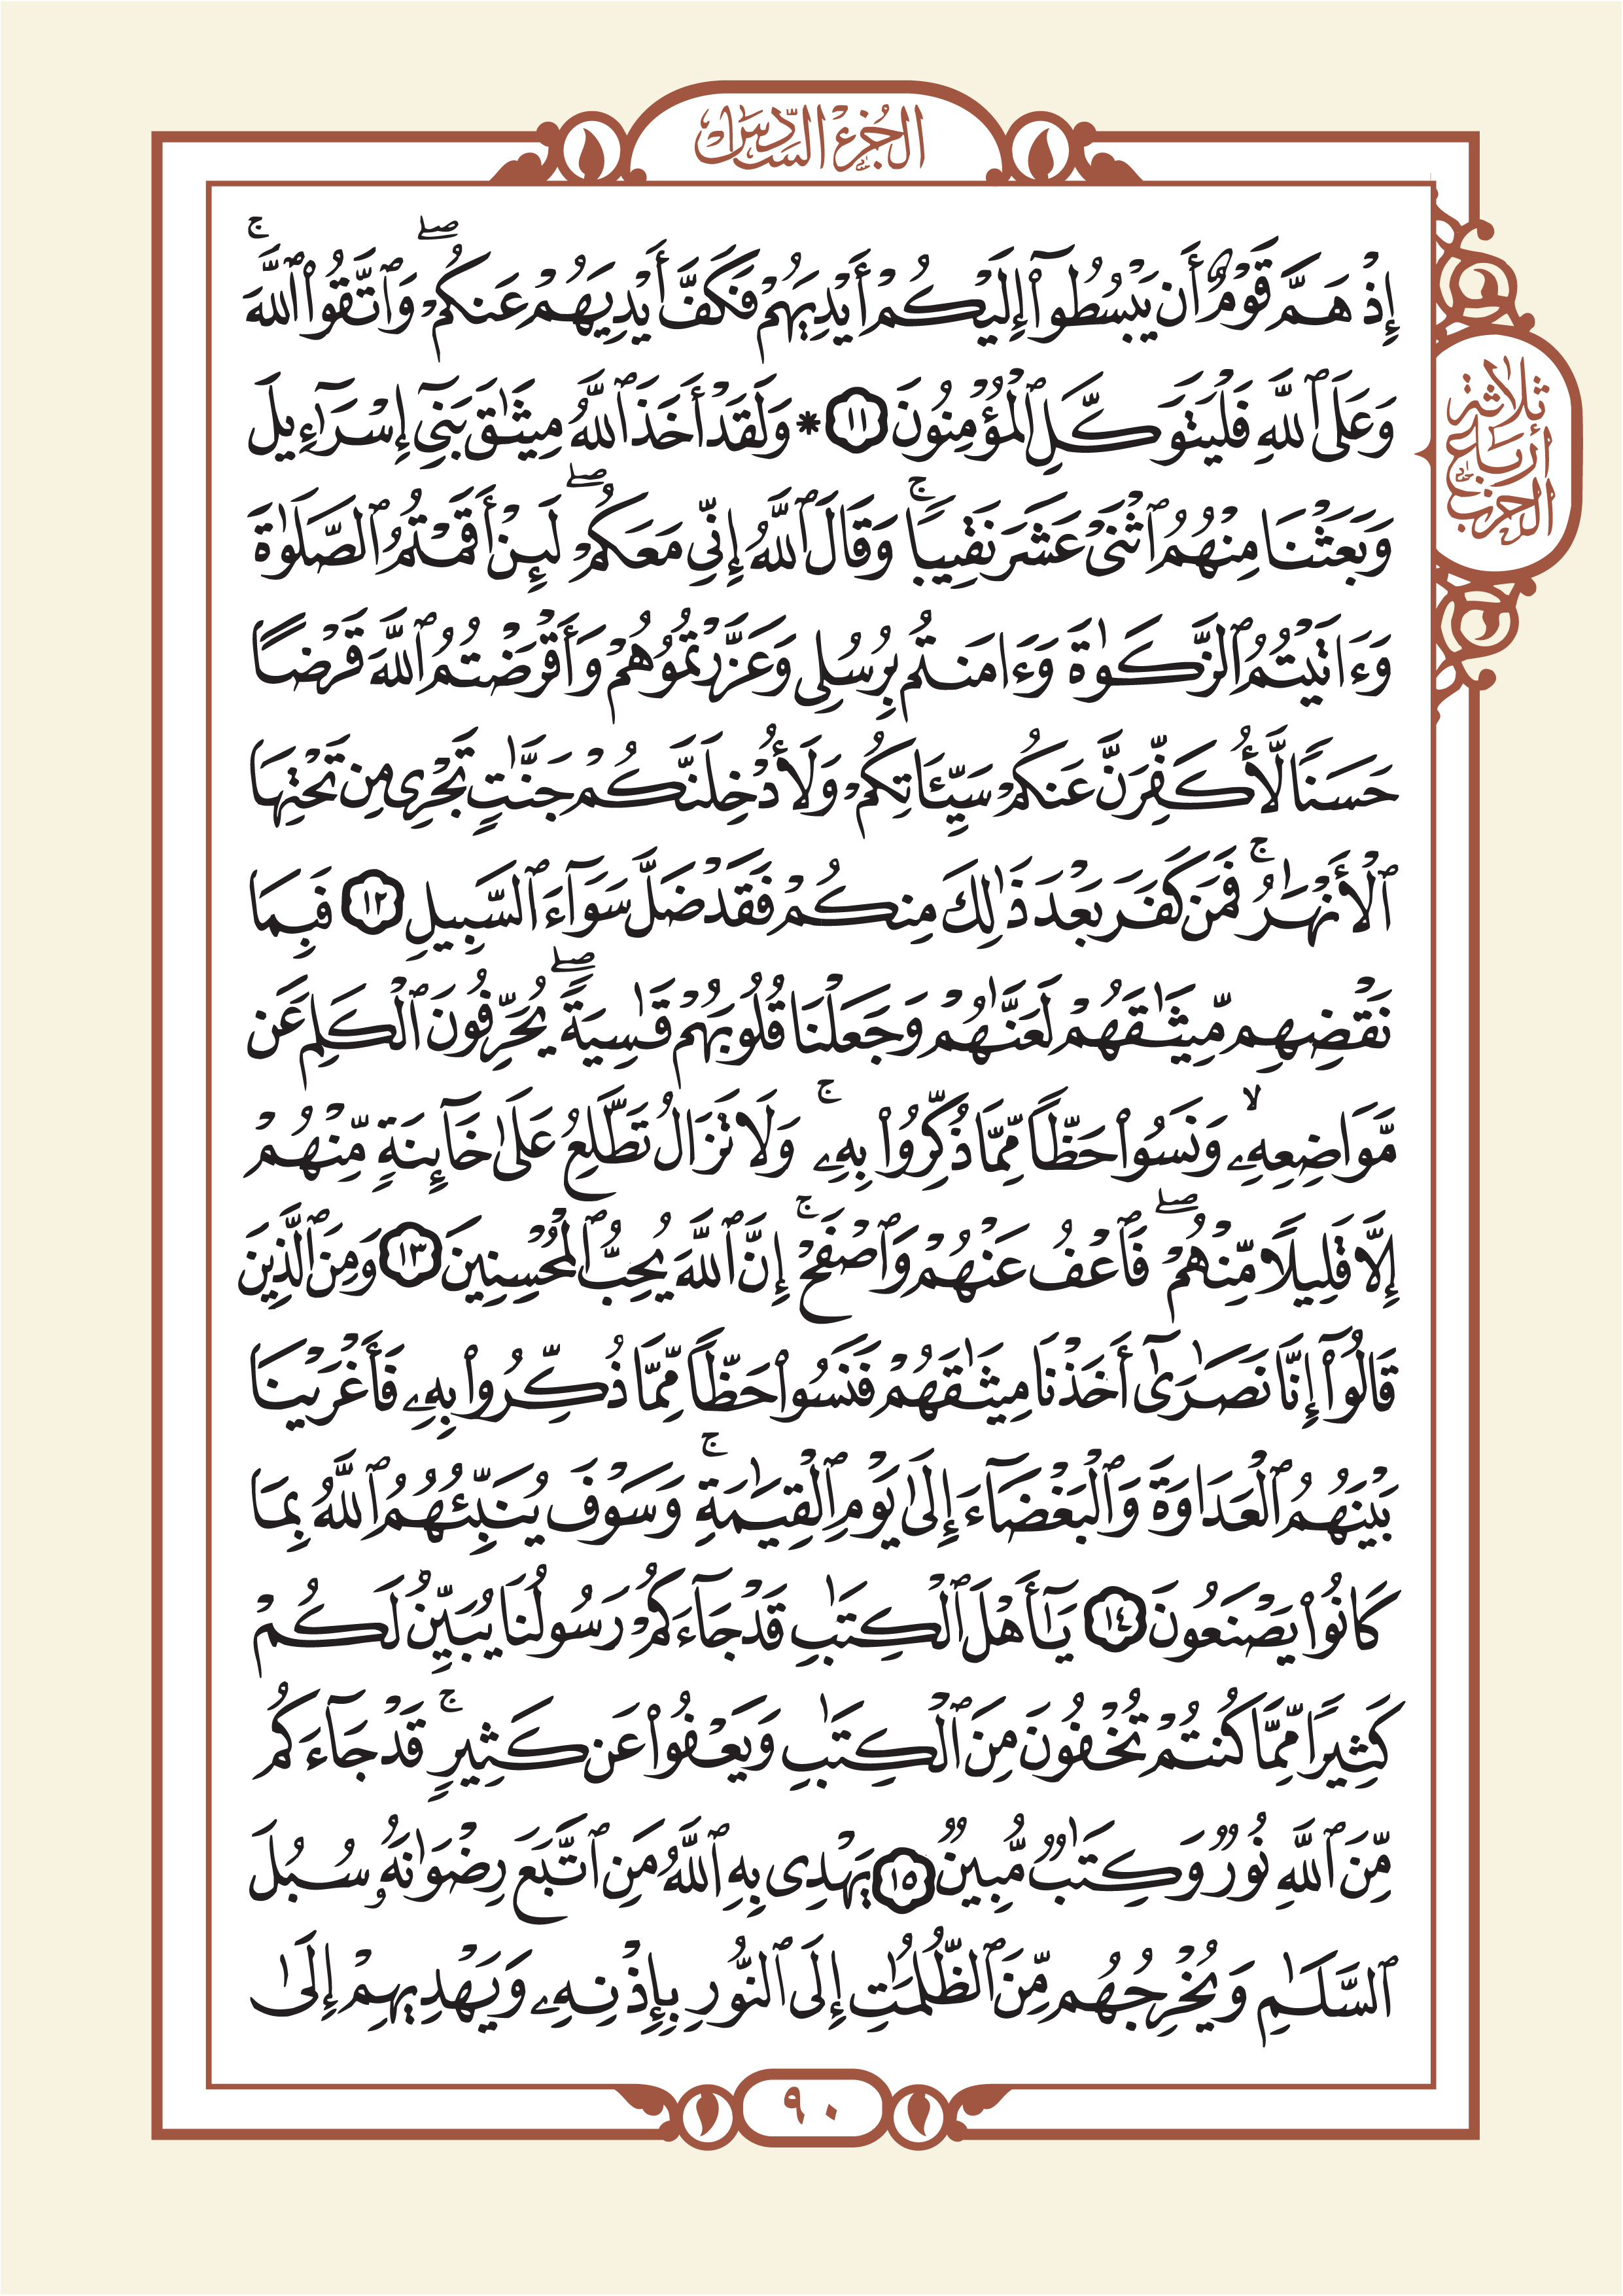 الجزء السادس
إِذْ هَمَّ قَوْمٌ أَن يَبْسُطُوٓا۟ إِلَيْكُمْ أَيْدِيَهُمْ فَكَفَّ أَيْدِيَهُمْ عَنكُمْ ۖ وَٱتَّقُوا۟ ٱللَّهَ ۚ
وَعَلَى ٱللَّهِ فَلْيَتَوَكَّلِ ٱلْمُؤْمِنُونَ ١١ * وَلَقَدْ أَخَذَ ٱللَّهُ مِيثَٰقَ بَنِىٓ إِسْرَٰٓءِيلَ
وَبَعَثْنَا مِنْهُمُ ٱثْنَىْ عَشَرَ نَقِيبًا ۖ وَقَالَ ٱللَّهُ إِنِّى مَعَكُمْ ۖ لَئِنْ أَقَمْتُمُ ٱلصَّلَوٰةَ
وَءَاتَيْتُمُ ٱلزَّكَوٰةَ وَءَامَنتُم بِرُسُلِى وَعَزَّرْتُمُوهُمْ وَأَقْرَضْتُمُ ٱللَّهَ قَرْضًا
حَسَنًا لَّأُكَفِّرَنَّ عَنكُمْ سَيِّـَٔاتِكُمْ وَلَأُدْخِلَنَّكُمْ جَنَّٰتٍ تَجْرِى مِن تَحْتِهَا
ٱلْأَنْهَٰرُ ۚ فَمَن كَفَرَ بَعْدَ ذَٰلِكَ مِنكُمْ فَقَدْ ضَلَّ سَوَآءَ ٱلسَّبِيلِ ١٢ فَبِمَا
نَقْضِهِم مِّيثَٰقَهُمْ لَعَنَّٰهُمْ وَجَعَلْنَا قُلُوبَهُمْ قَٰسِيَةً ۖ يُحَرِّفُونَ ٱلْكَلِمَ عَن
مَّوَاضِعِهِۦ ۙ وَنَسُوا۟ حَظًّا مِّمَّا ذُكِّرُوا۟ بِهِۦ ۚ وَلَا تَزَالُ تَطَّلِعُ عَلَىٰ خَآئِنَةٍ مِّنْهُمْ
إِلَّا قَلِيلًا مِّنْهُمْ ۖ فَٱعْفُ عَنْهُمْ وَٱصْفَحْ ۚ إِنَّ ٱللَّهَ يُحِبُّ ٱلْمُحْسِنِينَ ١٣ وَمِنَ ٱلَّذِينَ
قَالُوٓا۟ إِنَّا نَصَٰرَىٰٓ أَخَذْنَا مِيثَٰقَهُمْ فَنَسُوا۟ حَظًّا مِّمَّا ذُكِّرُوا۟ بِهِۦ فَأَغْرَيْنَا
بَيْنَهُمُ ٱلْعَدَاوَةَ وَٱلْبَغْضَآءَ إِلَىٰ يَوْمِ ٱلْقِيَٰمَةِ ۚ وَسَوْفَ يُنَبِّئُهُمُ ٱللَّهُ بِمَا
كَانُوا۟ يَصْنَعُونَ ١٤ يَٰٓأَهْلَ ٱلْكِتَٰبِ قَدْ جَآءَكُمْ رَسُولُنَا يُبَيِّنُ لَكُمْ
كَثِيرًا مِّمَّا كُنتُمْ تُخْفُونَ مِنَ ٱلْكِتَٰبِ وَيَعْفُوا۟ عَن كَثِيرٍ ۚ قَدْ جَآءَكُم
مِّنَ ٱللَّهِ نُورٌ وَكِتَٰبٌ مُّبِينٌ ١٥ يَهْدِى بِهِ ٱللَّهُ مَنِ ٱتَّبَعَ رِضْوَٰنَهُۥ سُبُلَ
ٱلسَّلَٰمِ وَيُخْرِجُهُم مِّنَ ٱلظُّلُمَٰتِ إِلَى ٱلنُّورِ بِإِذْنِهِۦ وَيَهْدِيهِمْ إِلَىٰ
ثلاثة
أرباع
الحزب
٩٠